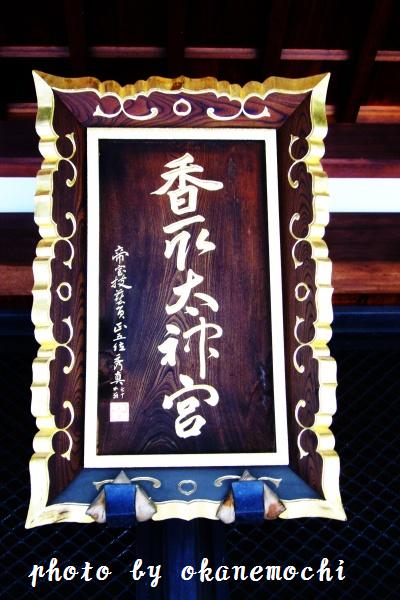 香取太神宮
帝室技藝員正五位秀真
photo by okanemochi